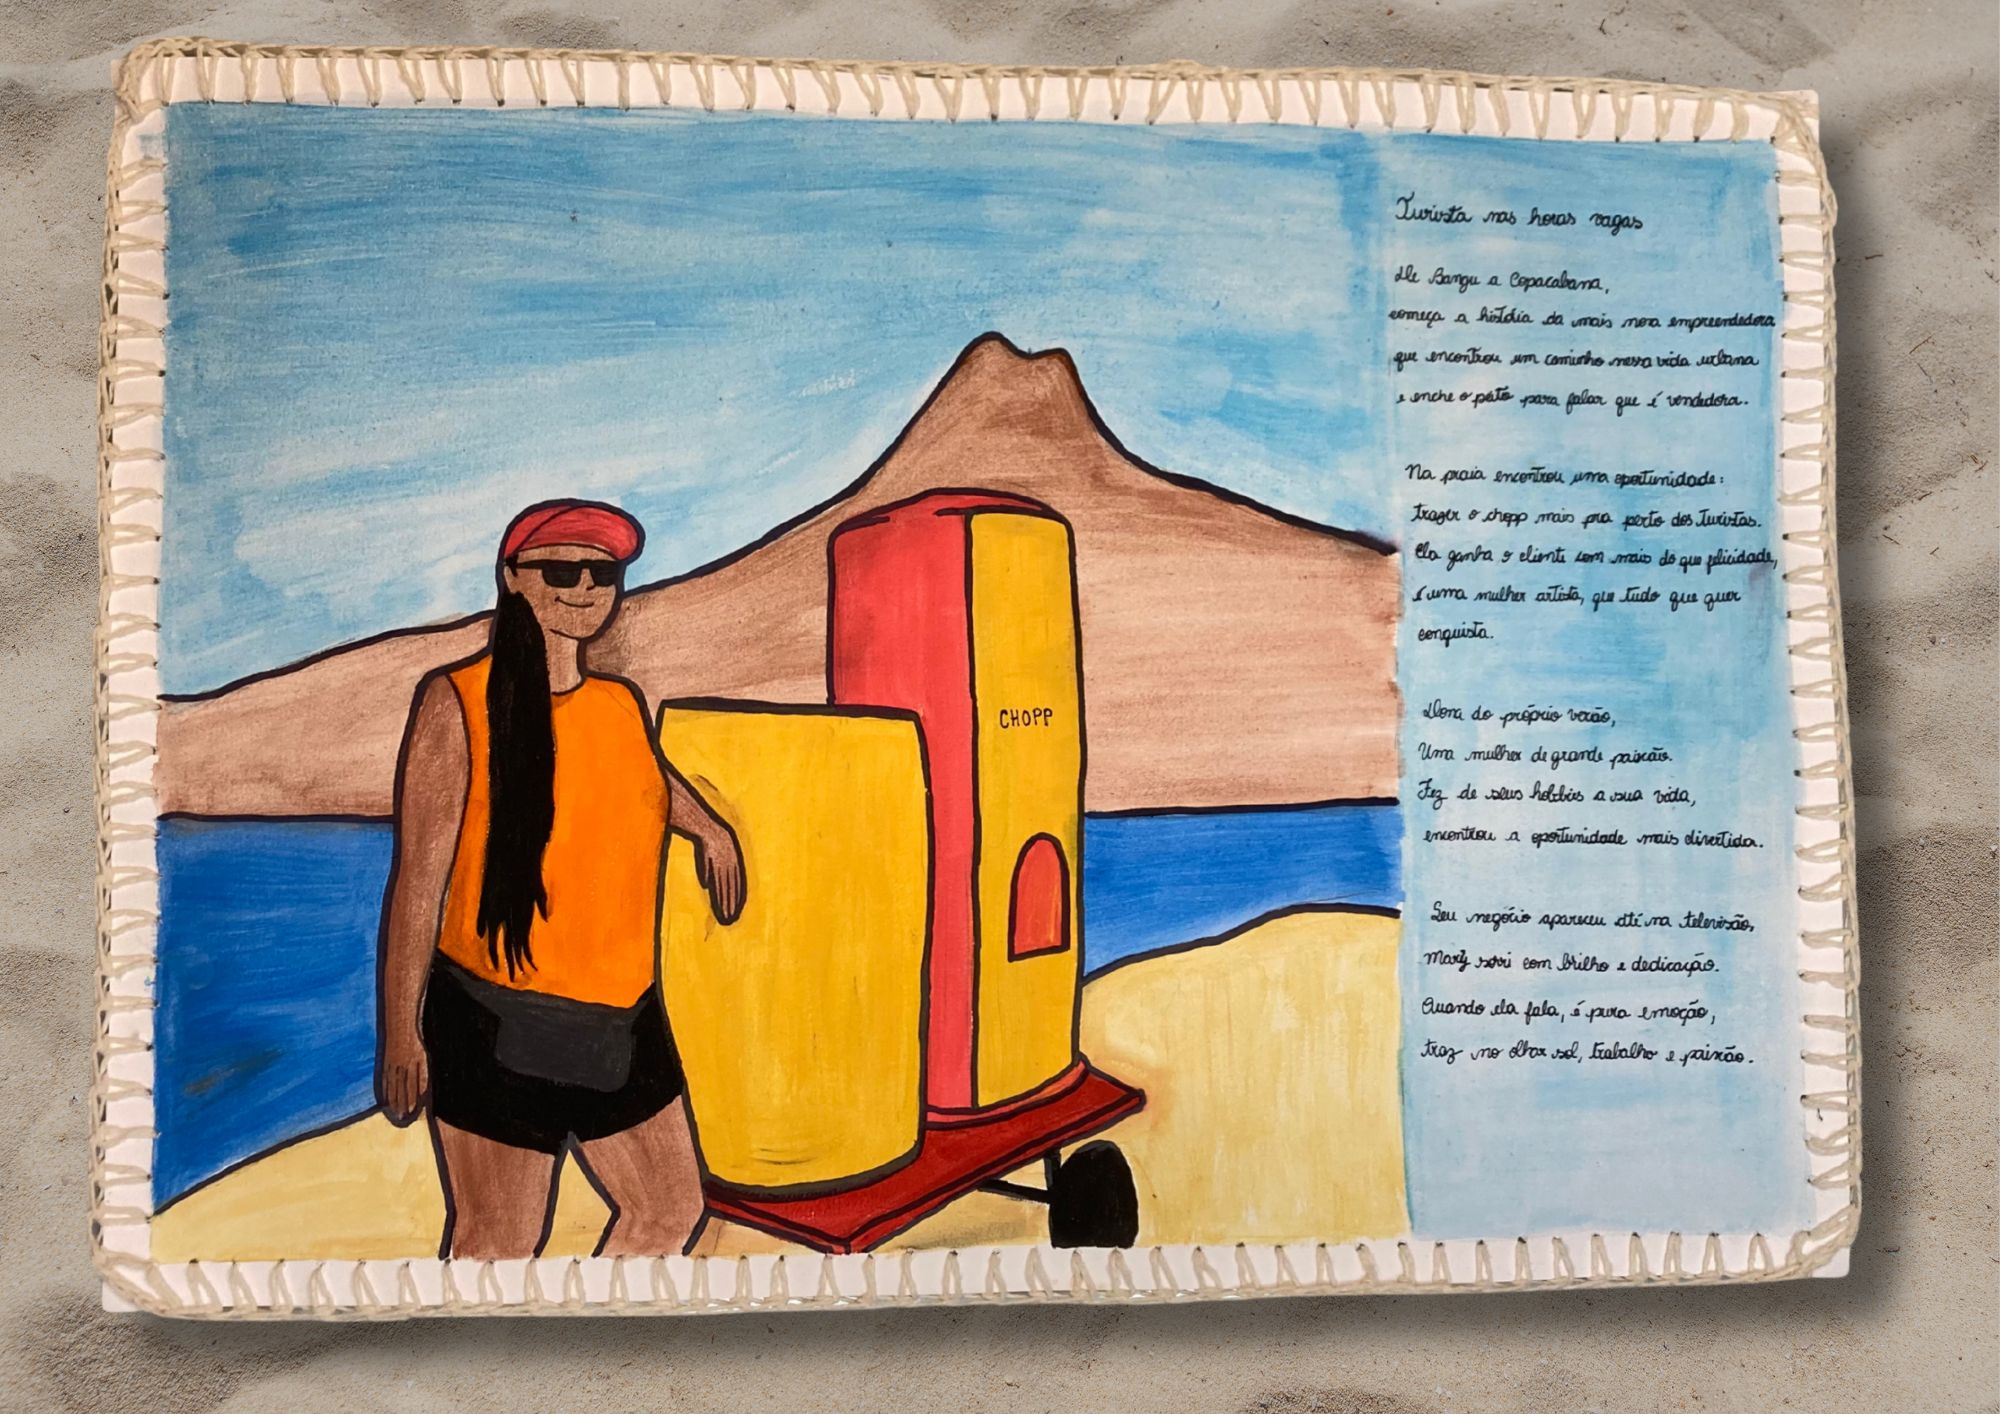 Turista nas horas vagas
De Bangu a Copacabana,
começa a história da mais nova empreendedora
que encontrou um caminho nessa vida urbana
e enche o peito para falar que é vendedora.
Na praia encontrou uma oportunidade:
trazer o chopp mais pra perto dos turistas.
Ela ganha o cliente com mais do que felicidade,
é uma mulher artista, que tudo que quer
conquista.
Dona do próprio verão,
Uma mulher de grande paixão.
Fez de seus hobbies a sua vida,
encontrou a oportunidade mais divertida.
Seu negócio apareceu até na televisão,
Mary sorri com brilho e dedicação.
Quando ela fala, é pura emoção,
traz no olhar sol, trabalho e paixão.
CHOPP